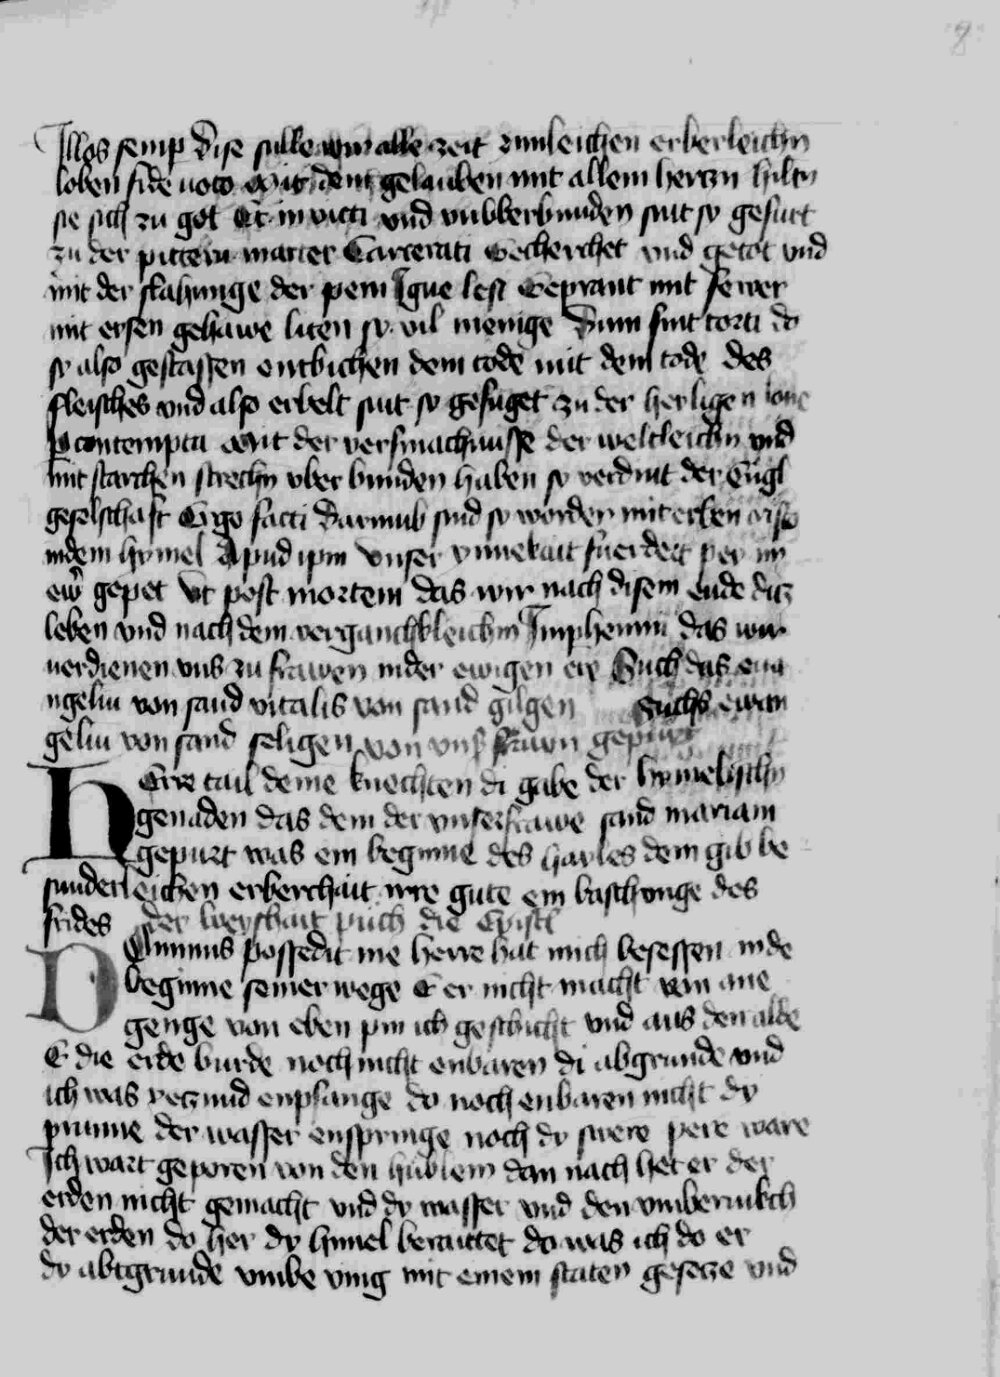 Illos semp dise sulle wir alle zeit zimleichen erberleichn
loben fide uoto Mit dem gelauben mit allem hertzn hilten
sie sich zu got Et in victi vnd vnbberbunden sint sy gefurt
zu der pittern marter Carcerati Gecherchet vnd getot vnd
mit der slahunge der pein Igne lesi Geprant mit fewer
mit eysen gehawe liten sy vil menige Dum sint torti do
sy also gestassen entbichen dem tode mit dem tode des
fleisches vnd also erbelt sint sy gefuget zu der heiligen lone
P contemptu Mit der versmachnusse der weltleichn vnd
mit starchen strechn vber bunden haben sy verdint der Engl
geselschaft Ergo facti Darumb sind sy worden miterben cristo
indem hymel Apud ipm vnser ynnekait fuerdert per im
ewr gepet Vt post mortem das wir nach disem ende ditz
leben vnd nach dem verganchkleichm Imphenni das wir
uerdienen vns zu frawen inder ewigen ere Such das eua
ngeliu von sand vitalis von sand gilgen Suchs ewan
geliu von sand seligen von vns frawn gepurt
HErre tail deine knechten di gabe der hymelischn
genaden das dem der vnserfrawe sand mariam
gepurt was ein beginne des hayles dem gib be
sunderleichen erberchait irre gute ein baschvnge des
frides der weyshait puch die Epistl
DOminus possedit me herre hat mich besessen inde
beginne seiner wege E er nicht macht von ane
genge von eben pin ich geschicht vnd aus den alde
E die erde burde noch nicht enbaren di abgrunde vnd
ich was yeczund enpfange do noch enbaren nicht dy
prunne der wasser enspringe noch dy swere pere ware
Ich wart geporen von den hublem dan nach het er der
erden nicht gemacht vnd dy wasser vnd den vmberinkch
der erden do her dy himel beraittet do was ich do er
dy abtgrunde vmbe ving mit einem staten gesecze vnd